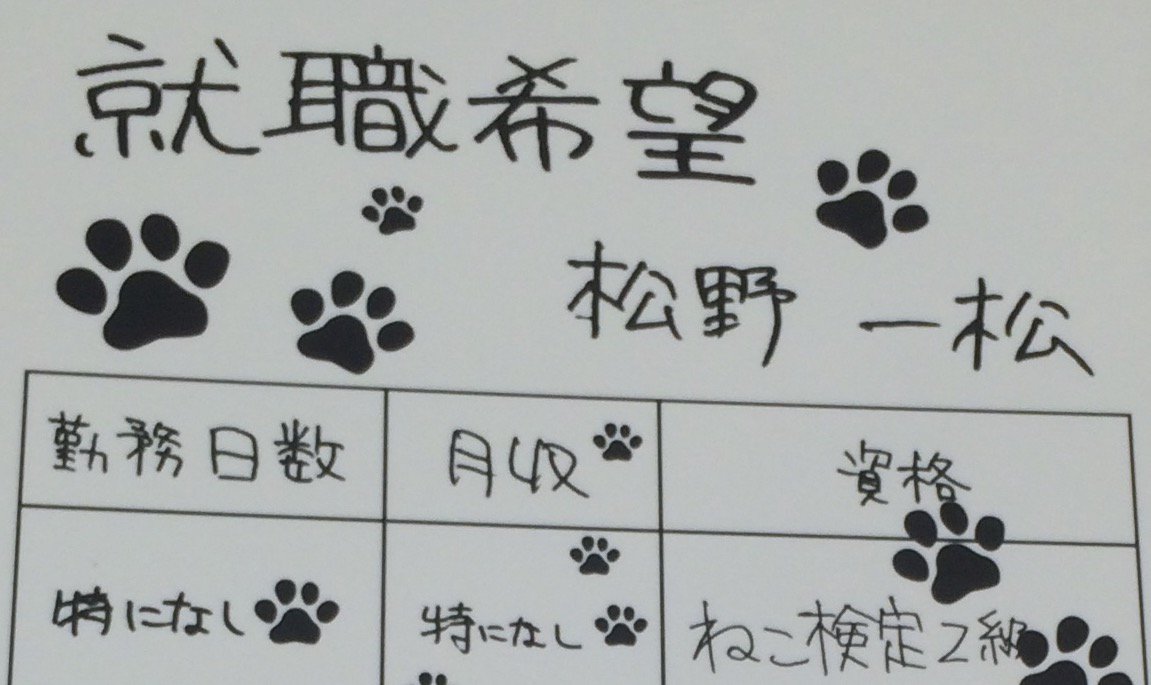 就職希望
松野 一松
勤務日数 月収 資格
特になし 特になし ねこ検定2級